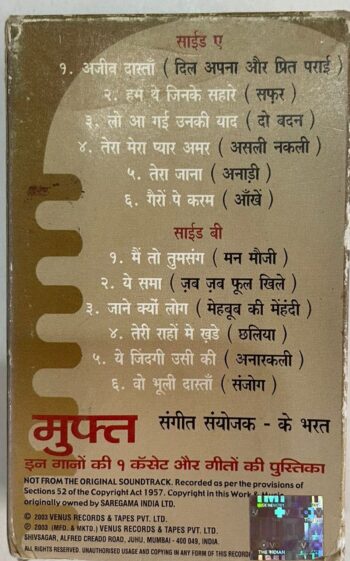 साईड ए
१. अजीब दास्ताँ ( दिल अपना और प्रित पराई )
२. हम थे जिनके सहारे ( सफ़र )
३. लो आ गई उनकी याद ( दो बदन )
४. तेरा मेरा प्यार अमर ( असली नकली )
५. तेरा जाना ( अनाड़ी )
६. गैरों पे करम ( आँखें )
साईड बी
१. मैं तो तुमसंग ( मन मौजी )
२. ये समा ( ज़ब ज़ब फूल खिले )
३. जाने क्यों लोग ( मेहबूब की मेहंदी )
४. तेरी राहों मे खड़े ( छलिया )
५. ये जिंदगी उसी की ( अनारकली )
६. वो भूली दास्ताँ ( संजोग )
मुफ्त संगीत संयोजक - के भरत
इन गानों की १ कॅसेट और गीतों की पुस्तिका
NOT FROM THE ORIGINAL SOUNDTRACK. Recorded as per the provisions of
Sections 52 of the Copyright Act 1957. Copyright in this Work & Music
originally owned by SAREGAMA INDIA LTD.
© 2003 VENUS RECORDS & TAPES PVT. LTD.
℗ 2003 (MFD. & MKTD.) VENUS RECORDS & TAPES PVT. LTD.
SHIVSAGAR, ALFRED CREADO ROAD, JUHU, MUMBAI - 400 049, INDIA.
ALL RIGHTS RESERVED. UNAUTHORISED USAGE AND COPYING IN ANY FORM OF THIS RECORD
IMI
THE INDIAN